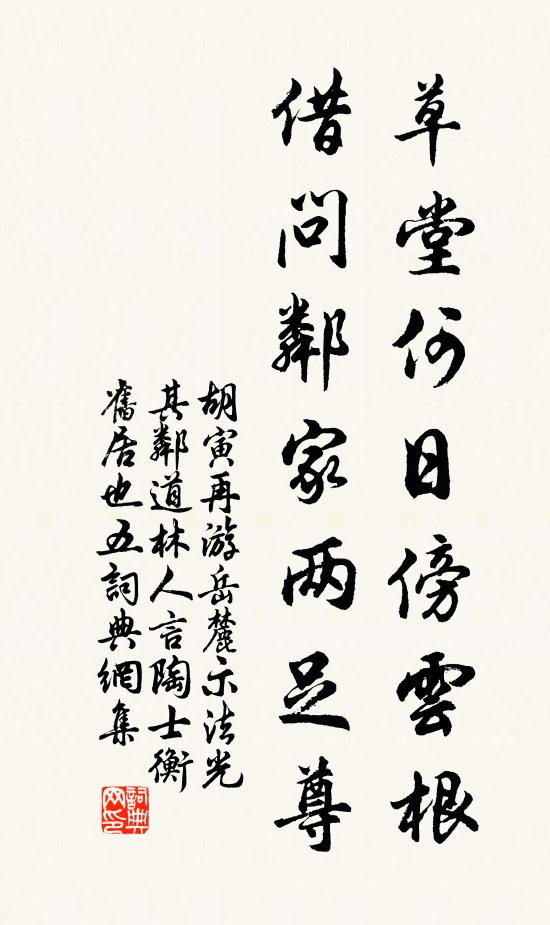 草堂何日傍雲根
借問鄰家兩足尊
胡寅再游岳麓示法光
其鄰道林人言陶士衡
舊居也五詞典網集
詞典網印